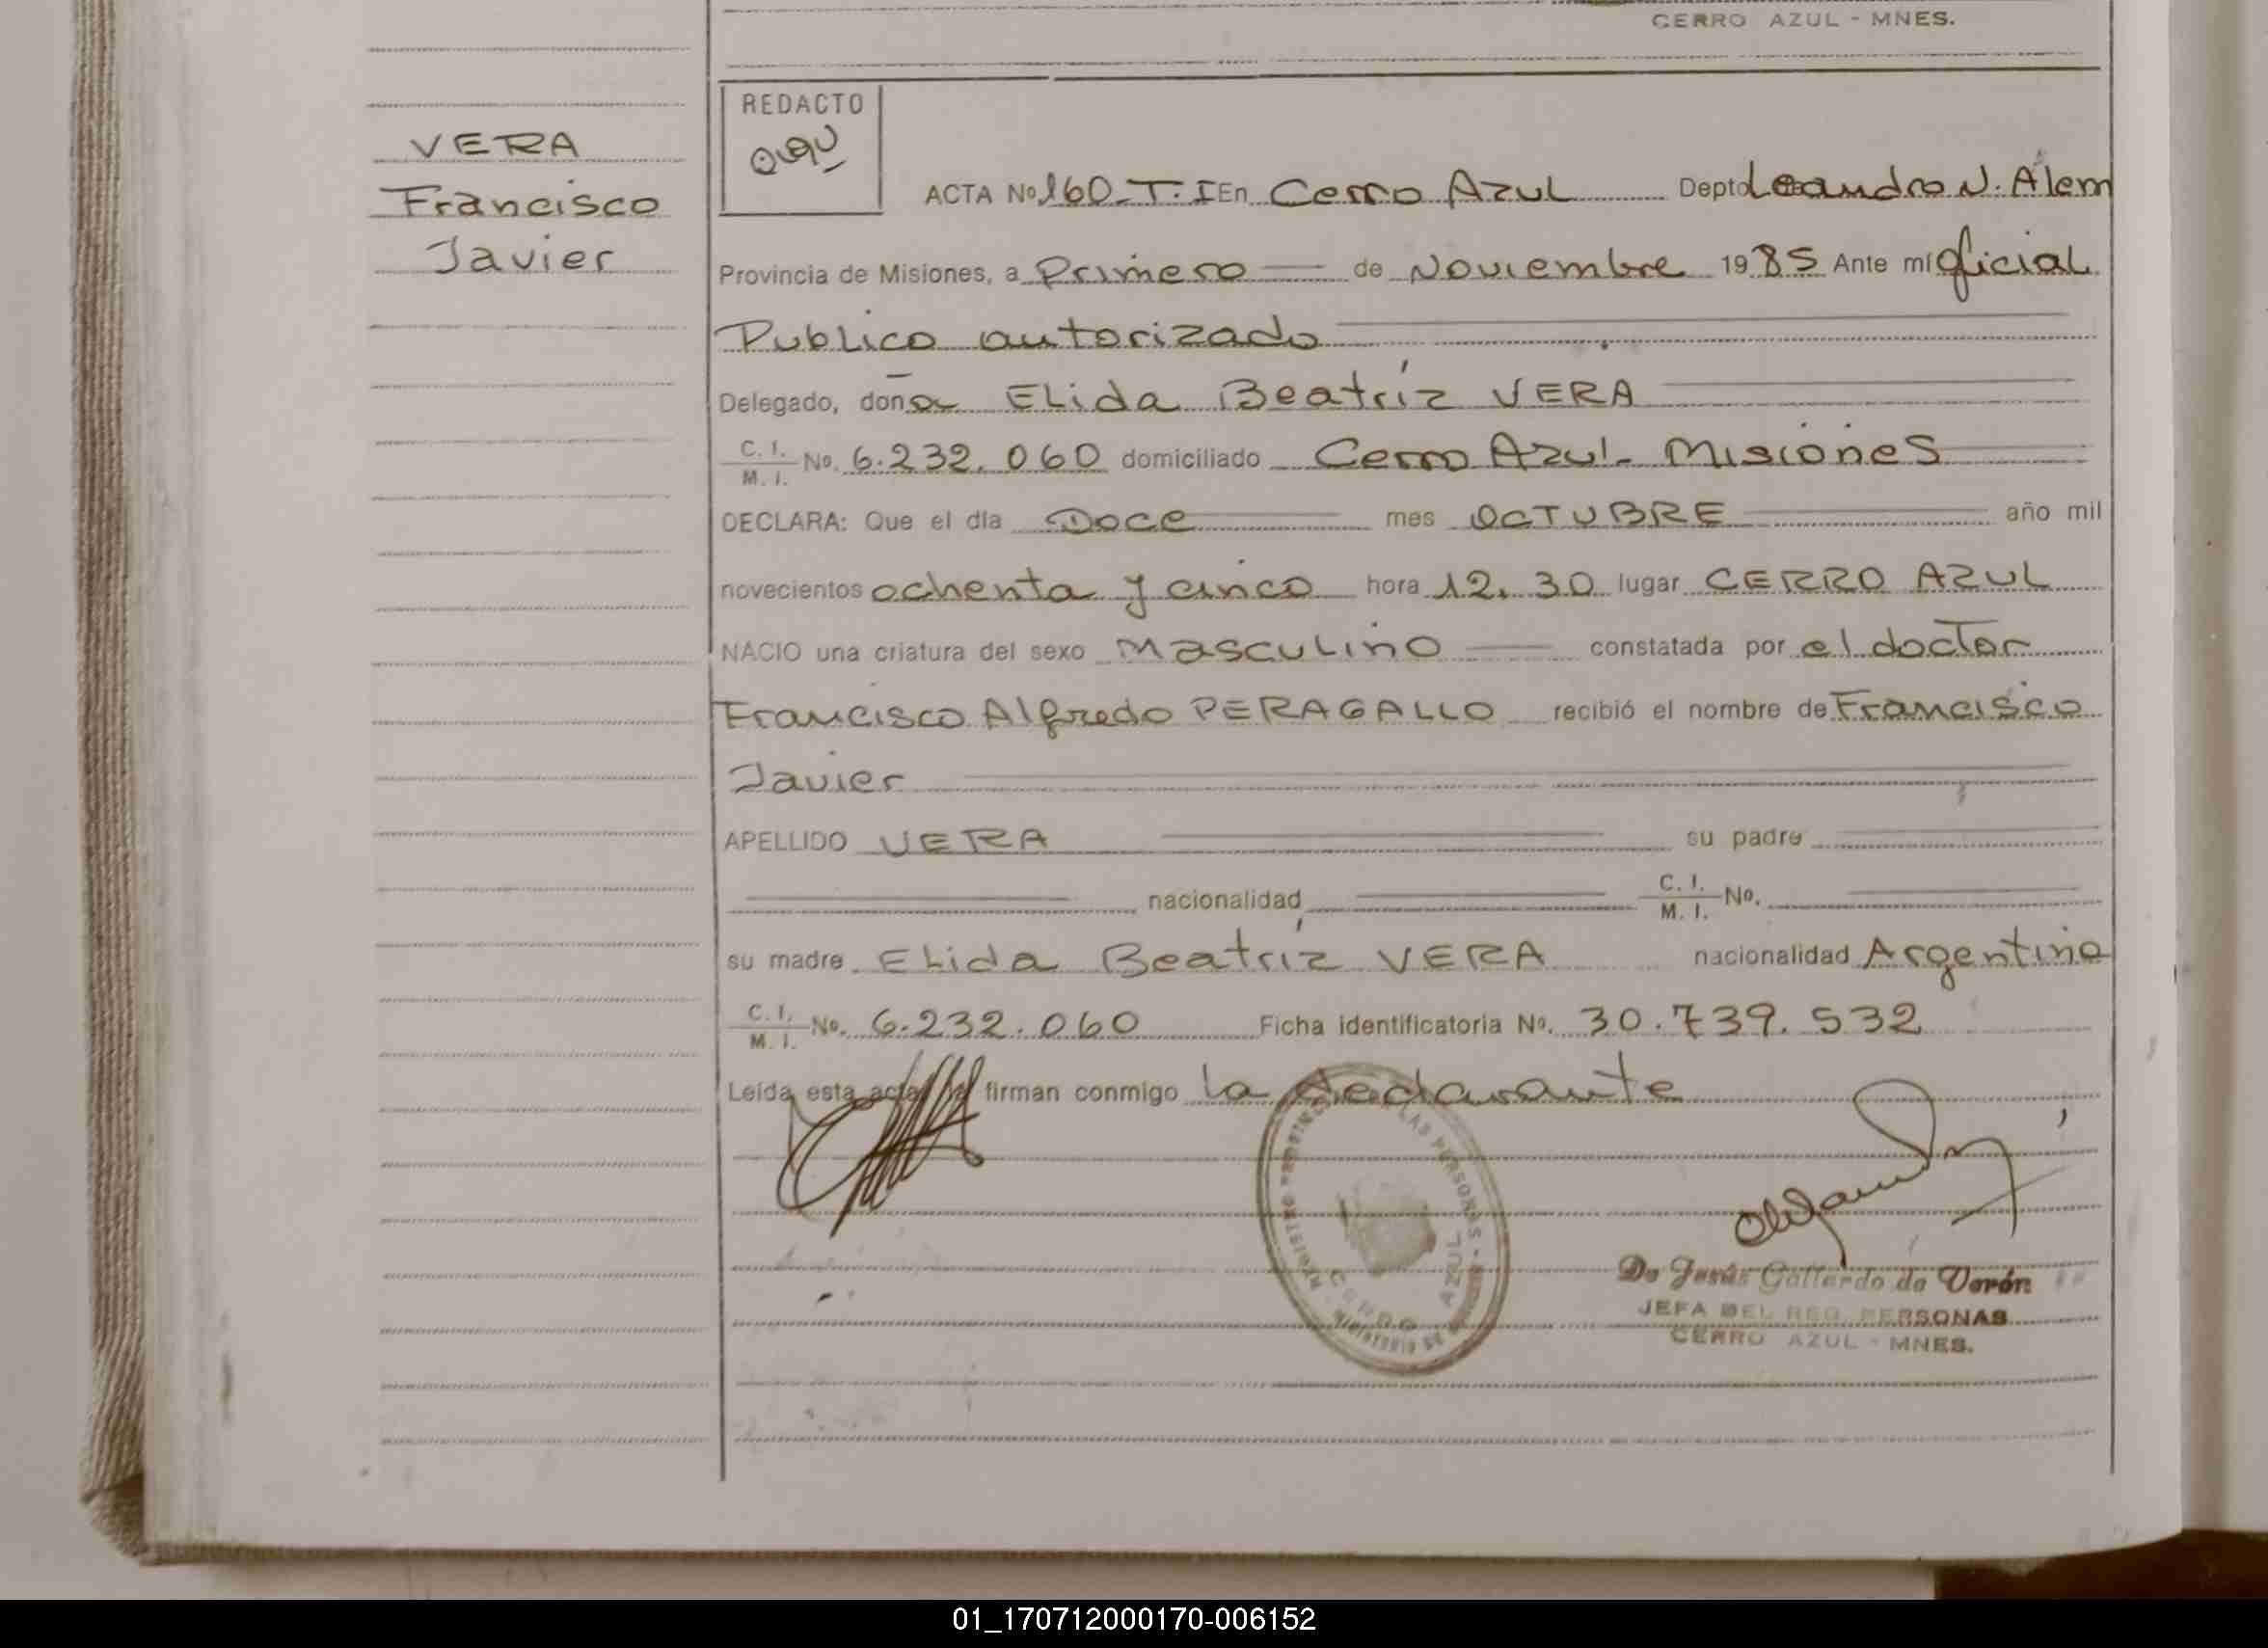 CERRO AZUL - MNES.
VERA
Francisco
Javier
REDACTO
ACTA Nº 160-T.I En Cerro Azul Depto Leandro N. Alem
Provincia de Misiones, a Primero de Noviembre 1985 Ante mí Oficial
Publico autorizado
Delegado, doña Elida Beatríz VERA
C. I. / M. I. Nº 6.232.060 domiciliado Cerro Azul- Misiones
DECLARA: Que el día Doce mes OCTUBRE año mil
novecientos ochenta y cinco hora 12.30 lugar CERRO AZUL
NACIO una criatura del sexo Masculino constatada por el doctor
Francisco Alfredo PERAGALLO recibió el nombre de Francisco
Javier
APELLIDO VERA su padre
nacionalidad C. I. / M. I. Nº.
su madre Elida Beatríz VERA nacionalidad Argentina
C. I. / M. I. Nº. 6.232.060 Ficha identificatoria Nº. 30.739.532
Leída esta acta la firman conmigo la declarante
LAS PERSONAS
CERRO AZUL
De Jesús Gallardo de Verón
JEFA DEL REG. PERSONAS
CERRO AZUL - MNES.
01_170712000170-006152